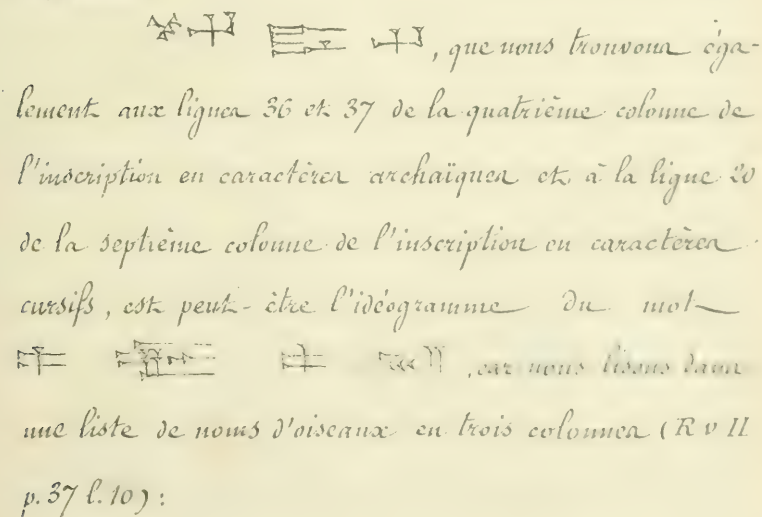 , que nous trouvons éga-
lement aux lignes 36 et 37 de la quatrième colonne de
l'inscription en caractères archaïques et à la ligne 20
de la septième colonne de l'inscription en caractères
cursifs, est peut-être l'idéogramme du mot
, car nous lisons dans
une liste de noms d'oiseaux en trois colonnes (R v II
p. 37 l. 10) :